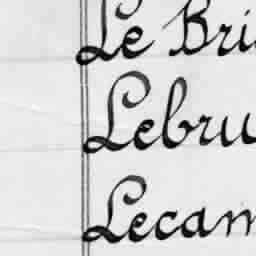 Le Bri
Lebru
Lecam